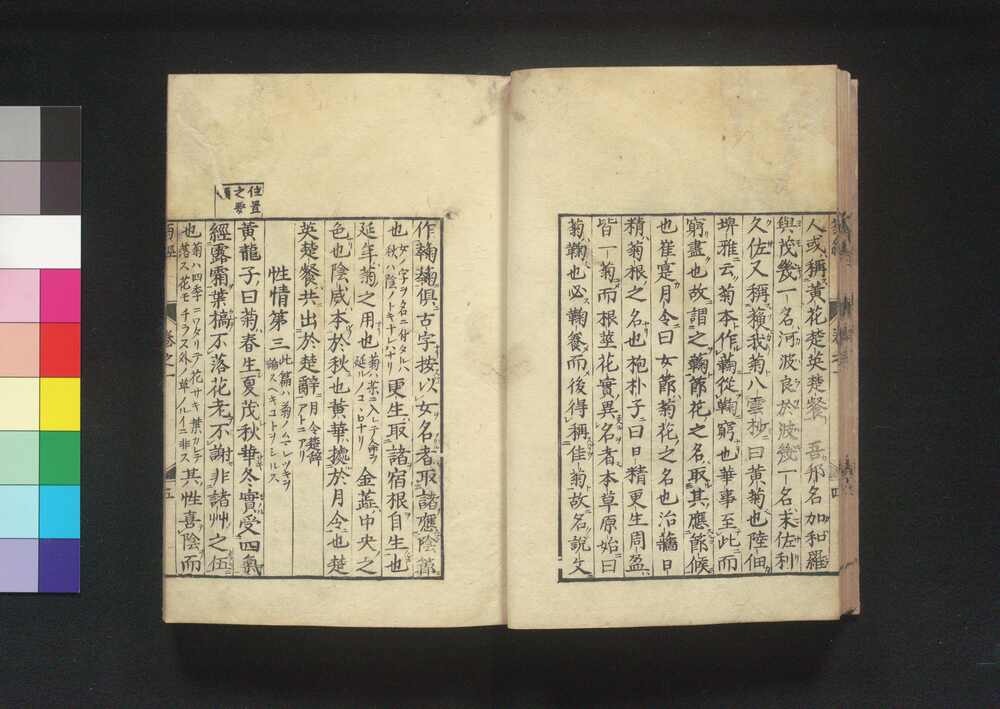 人或稱黃花楚英楚餐 吾邦名加和羅
與茂幾一名河波良於波幾一名末佐利
久佐又稱蘠我菊八雲抄曰黃菊也陸佃
埤雅云菊本作蘜從鞠窮也華事至此而
窮盡也故謂之蘜節花之名取其應節候
也崔寔月令曰女節菊花之名也治蘠日
精菊根之名也抱朴子曰日精更生周盈
皆一菊而根莖花實異名者本草原始曰
菊蘜也必蘜養而後得稱佳菊故名說文
作蘜蘜俱古字按以女名者取諸應陰節
也女ノ字ヲ名ニ付タルハ
秋ハ陰ノトキナレハナリ更生取諸宿根自生也
延年菊之用也菊ハ茶ニ入レテ命ヲ
延ルノコヽロナリ金蕋中央之
色也陰威本於秋也黃華據於月令也楚
英楚餐共出於楚辭月令楚辭
アトニアリ
性情第三此篇ハ菊ノムマレツキヲ
論スヘキコトヲシルス
黃龍子曰菊春生夏茂秋華冬實受四氣
經露霜葉槁不落花老不謝非諸艸之伍
也菊ハ四季ニワタリテ花サキ葉カレテ
落ス花モチラス外ノ草ノルイニ非ス其性喜陰而
位置
之要
卷之一
五